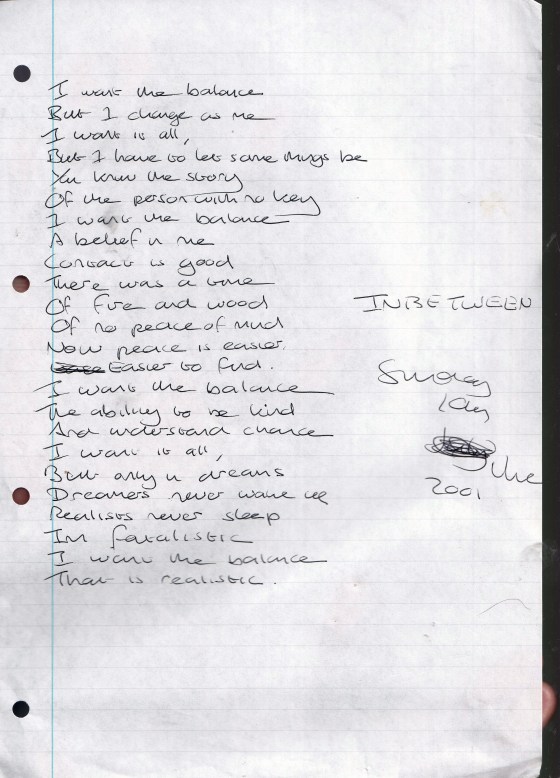 I want the balance
But I change as me
I want it all,
But I have to let some things be
You know the story
Of the person with no key
I want the balance
A belief in me
Contact is good
There was a time
Of fire and wood
Of no peace of mind
Now peace is easier
Easier to find.
I want the balance
The ability to be kind
And understand chance
I want it all,
But only in dreams
Dreamers never wake up
Realists never sleep
Im fatalistic
I want the balance
That is realistic.
INBETWEEN
Sunday
10th
June
2001